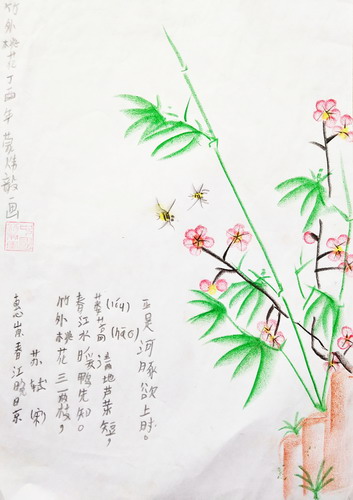 竹外桃花丁酉年蒙炜毅画
惠崇春江晚景
苏轼(宋)
竹外桃花三两枝，
春江水暖鸭先知。
蒌(lóu)蒿(hāo)满地芦芽短，
正是河豚欲上时。